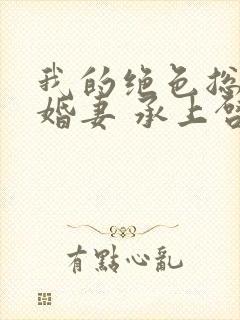 我的绝色总
婚妻 承上启
有點心亂